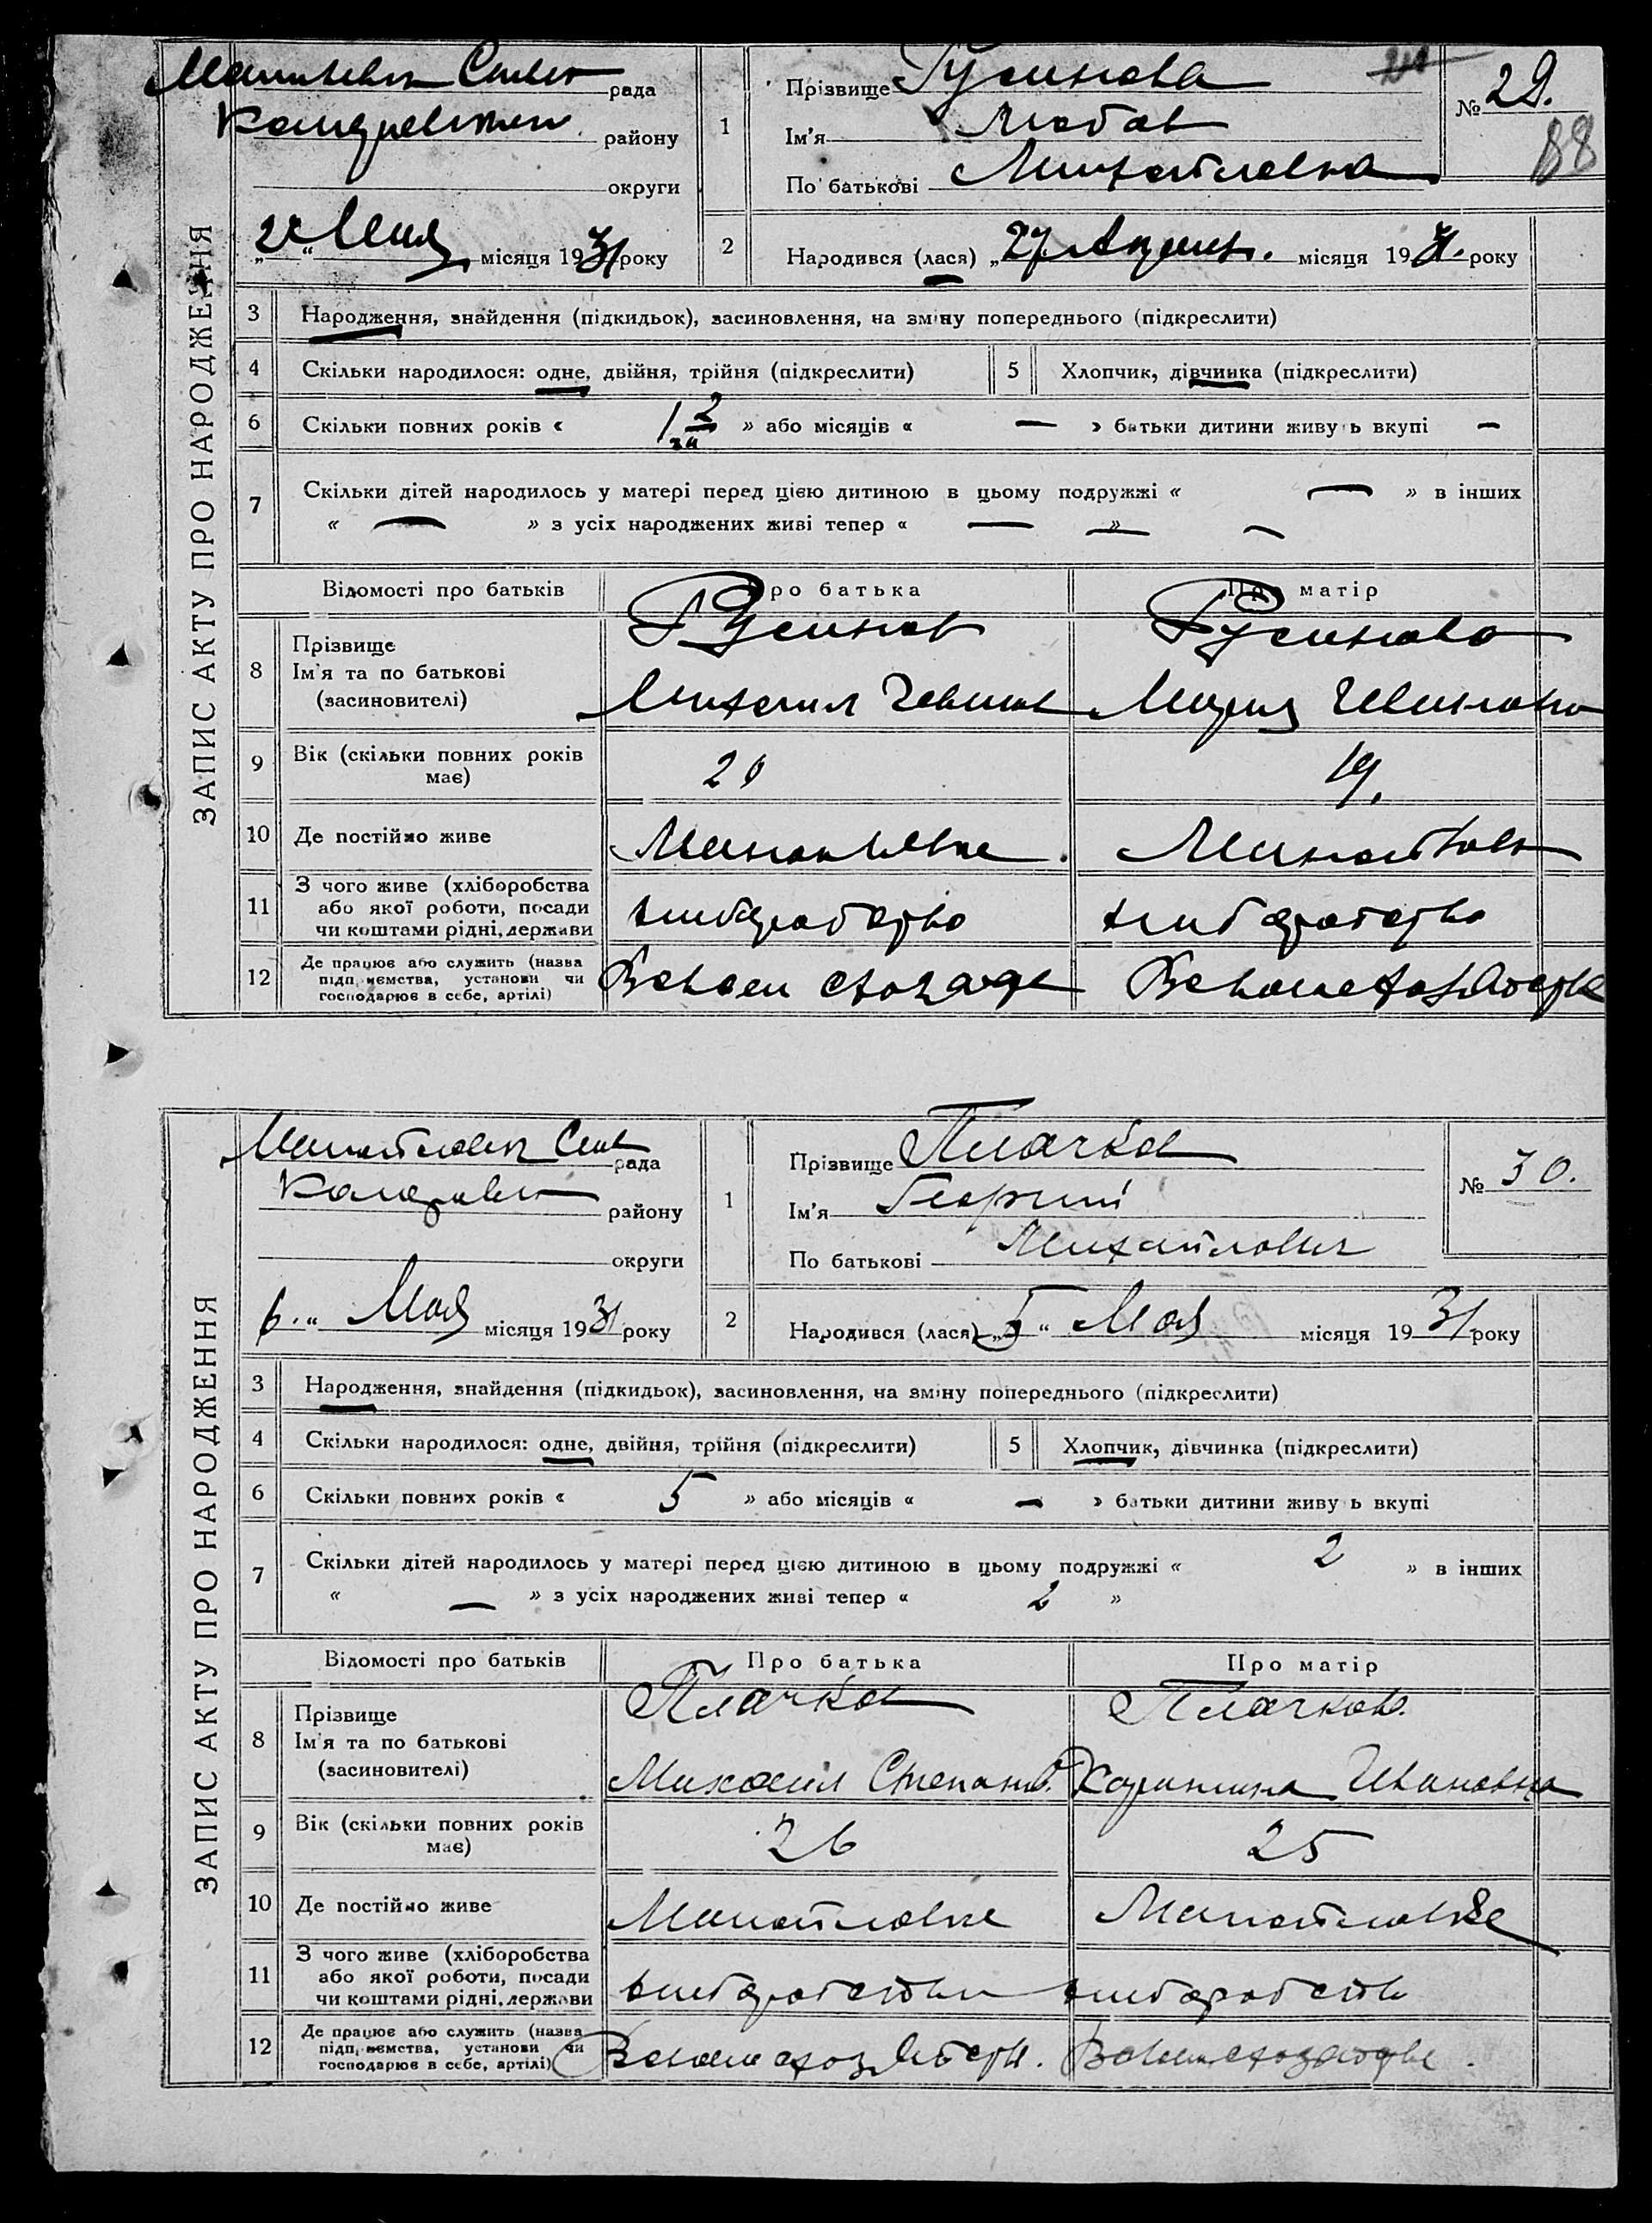 ЗАПИС АКТУ ПРО НАРОДЖЕННЯ
рада
району
округи
Мая місяця 1931 року
1
Прізвище Русинова
Ім'я Любов
По батькові Михайловна
№ 29.
88
2
Народився (лася) „27 місяця 1931. року
3 Народження, знайдення (підкидьок), засиновлення, на зміну попереднього (підкреслити)
4 Скільки народилося: одне, двійня, трійня (підкреслити) 5 Хлопчик, дівчинка (підкреслити)
6 Скільки повних років « » або місяців « — » батьки дитини живуть вкупі —
7 Скільки дітей народилось у матері перед цією дитиною в цьому подружжі « — » в інших
« — » з усіх народжених живі тепер « — »
Відомості про батьків Про батька Про матір
8 Прізвище
Ім'я та по батькові
(засиновителі)
Русинов
Михаил
Русинова
Мария Ивановна
9 Вік (скільки повних років має) 20 19.
10 Де постійно живе
11 З чого живе (хліборобства
або якої роботи, посади
чи коштами рідні, держави
хлиборобство хлиборобство
12 Де працює або служить (назва
підприємства, установи чи
господарює в себе, артілі)
ЗАПИС АКТУ ПРО НАРОДЖЕННЯ
рада
району
округи
6. “ Мая місяця 1931 року
1
Прізвище Плачков
Ім'я Георгий
По батькові Михайлович
№ 30.
2
Народився (лася) „5“ Мая місяця 1931 року
3 Народження, знайдення (підкидьок), засиновлення, на зміну попереднього (підкреслити)
4 Скільки народилося: одне, двійня, трійня (підкреслити) 5 Хлопчик, дівчинка (підкреслити)
6 Скільки повних років « 5 » або місяців « — » батьки дитини живуть вкупі
7 Скільки дітей народилось у матері перед цією дитиною в цьому подружжі « 2 » в інших
« — » з усіх народжених живі тепер « 2 »
Відомості про батьків Про батька Про матір
8 Прізвище
Ім'я та по батькові
(засиновителі)
Плачков
Михаил Степанов.
Плачкова
Ивановна
9 Вік (скільки повних років має) 26 25
10 Де постійно живе
11 З чого живе (хліборобства
або якої роботи, посади
чи коштами рідні, держави
12 Де працює або служить (назва
підприємства, установи чи
господарює в себе, артілі)